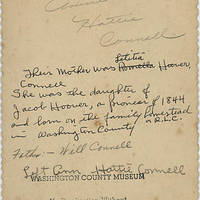 Annie
Hattie
Connell
Letitia
Their Mother was Amelia Hoover,
Connell
She was the daughter of
Jacob Hoover, a pioneer of 1844
and born on the family homestead
in Washington County R.L.C.
Father - Will Connell
Lft Ann Hattie Connell
WASHINGTON COUNTY MUSEUM